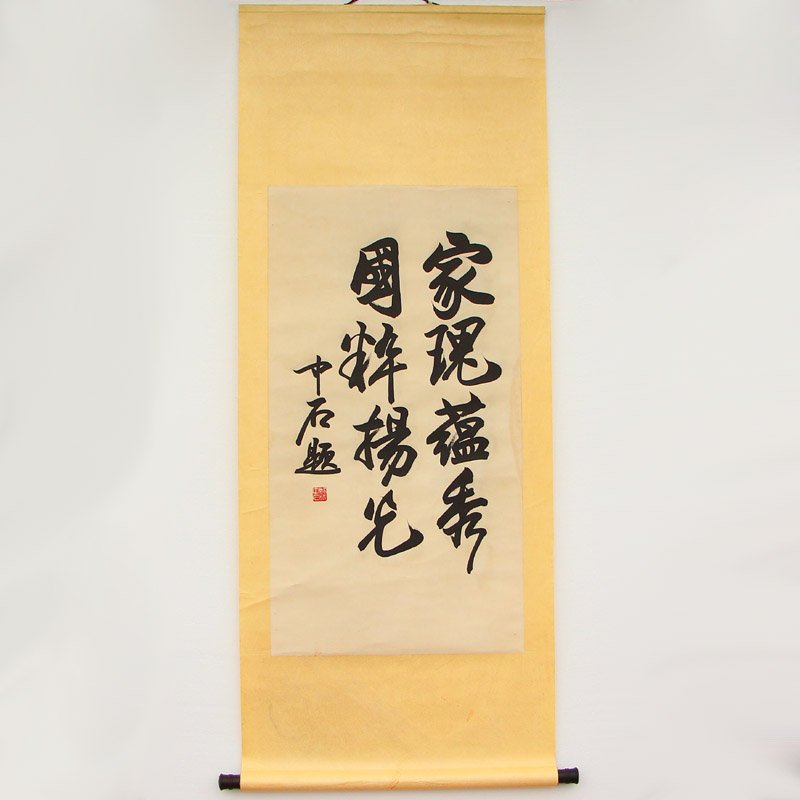 家瑰蕴秀
國粹揚光
中石题